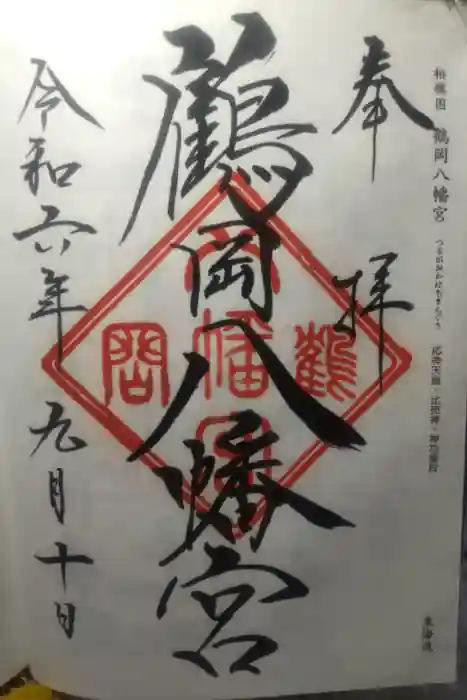 相模国 鶴岡八幡宮 つるがおかはちまんぐう 応神天皇・比売神・神功皇后
東海道
奉拝
鶴岡八幡宮
鶴岡八幡宮
令和六年九月十日